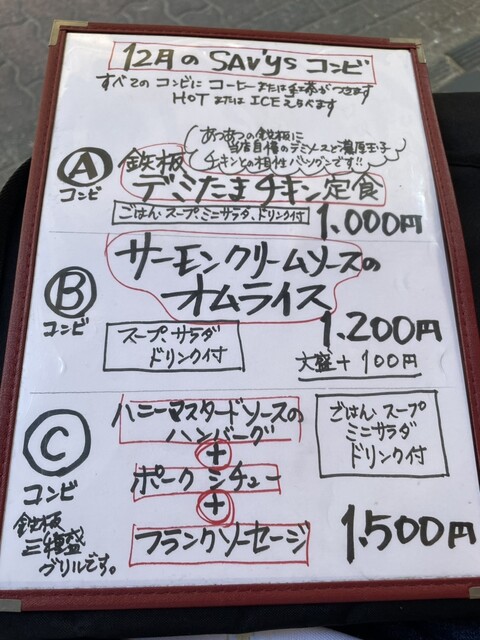 12月のSAV'ysコンビ
すべてのコンビにコーヒーまたは紅茶がつきます
HOTまたはICEえらべます
あつあつの鉄板に
当店自慢のデミソースと濃厚玉子
チキンとの相性バツグンです!!
Ⓐ
コンビ
鉄板
デミたまチキン定食
ごはん、スープ、ミニサラダ、ドリンク付
1.000円
Ⓑ
コンビ
サーモンクリームソースの
オムライス
スープ、サラダ
ドリンク付
1.200円
大盛+100円
Ⓒ
コンビ
鉄板
三種盛
グリルです。
ハニーマスタードソースの
ハンバーグ
+
ポークシチュー
+
フランクソーセージ
ごはん スープ
ミニサラダ
ドリンク付
1.500円